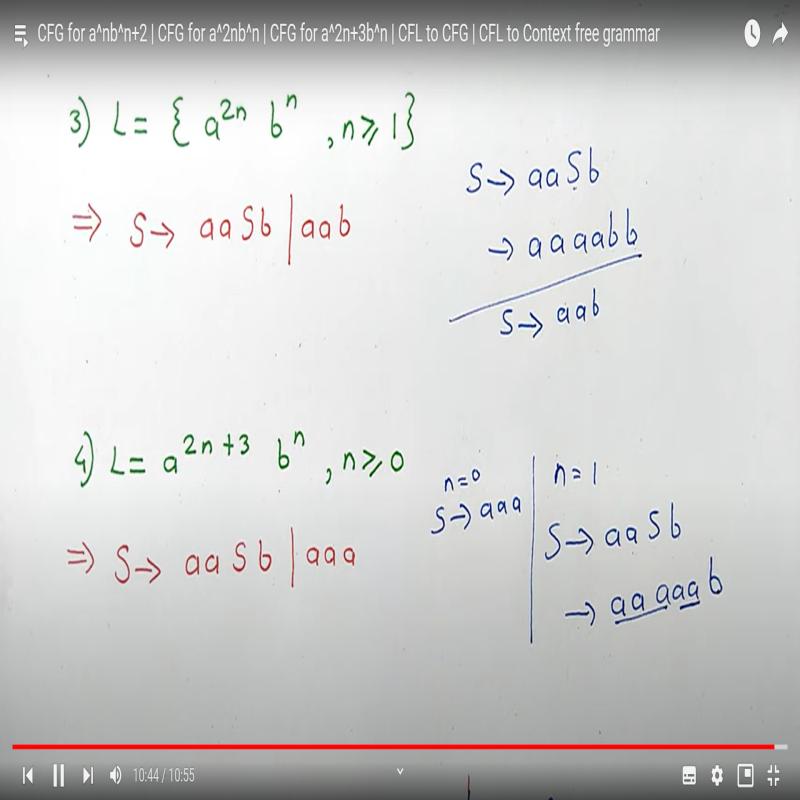 CFG for a^nb^n+2 | CFG for a^2nb^n | CFG for a^2n+3b^n | CFL to CFG | CFL to Context free grammar
3) L = { a^2n b^n , n ≥ 1 }
⇒ S → aaSb | aab
S → aaSb
→ aaaabb
S → aab
4) L = a^2n+3 b^n , n ≥ 0
⇒ S → aaSb | aaa
n=0
S → aaa
n = 1
S → aaSb
→ aaaaab
10:44 / 10:55